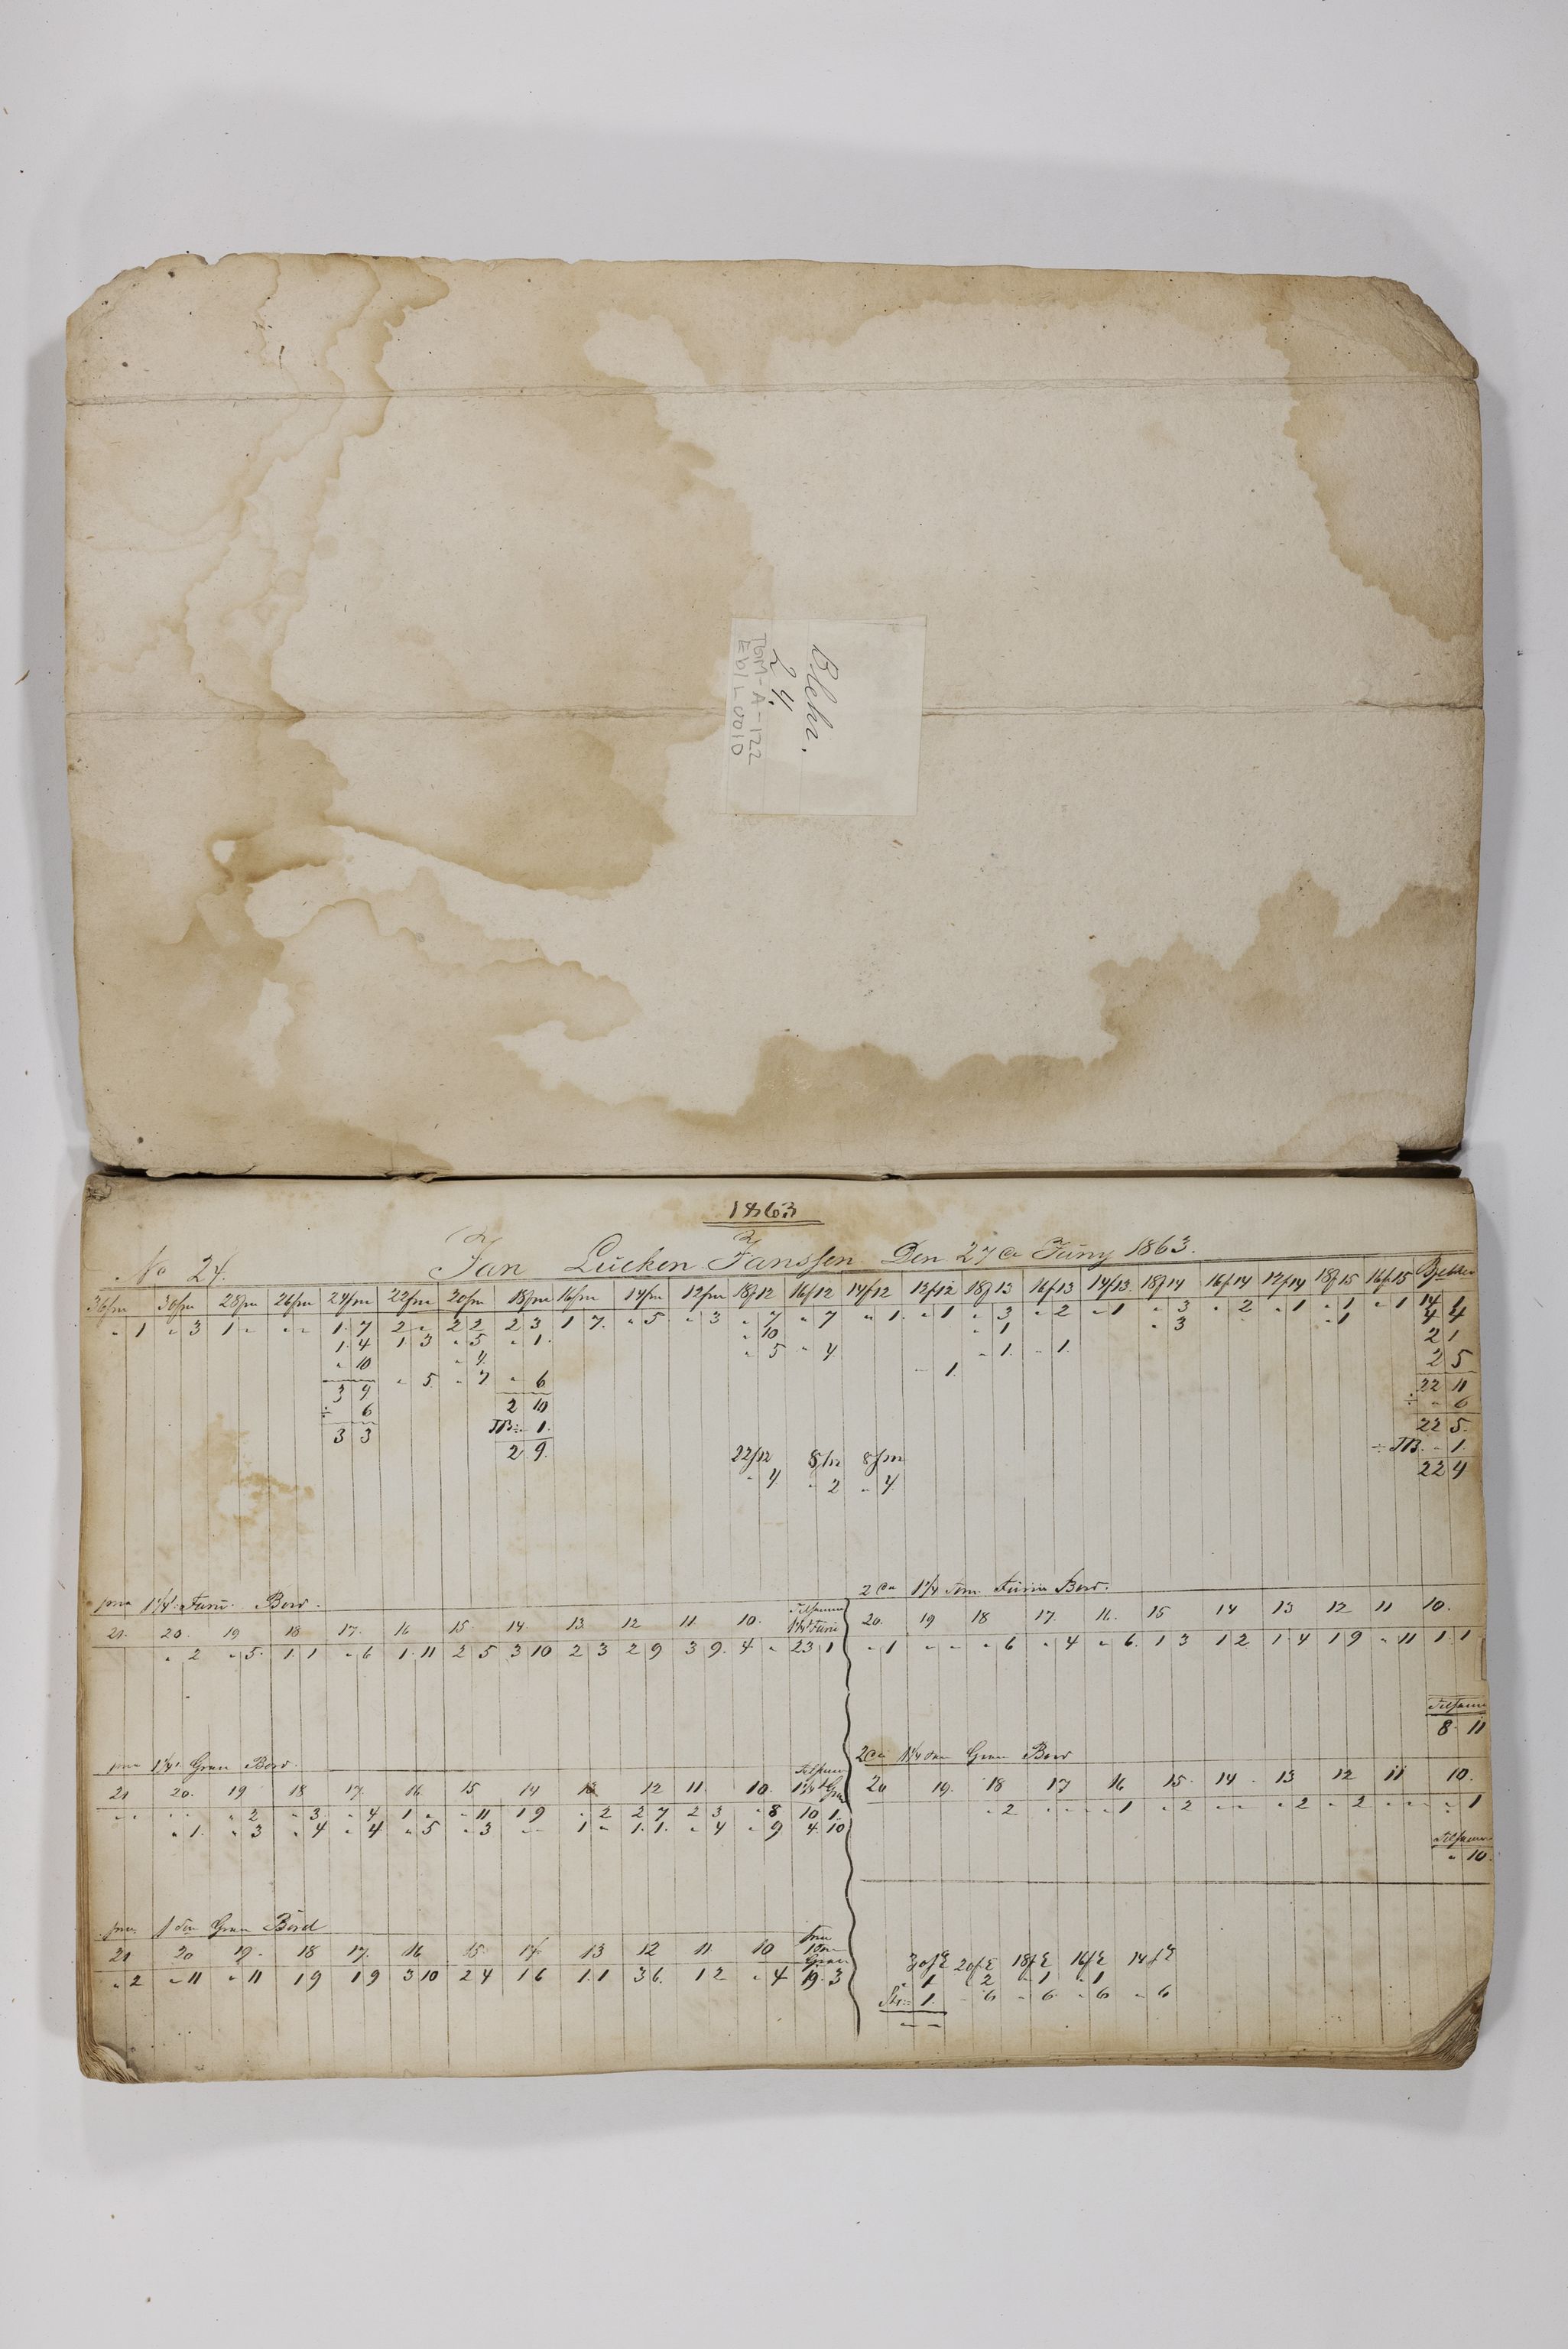 Blehr.
24.
TGM-A-122
Eb/L0010
1863
No 24. Jan Lücken Janssen Den 27de Juny 1863.
36/m 30/m 28/m 26/m 24/m 22/m 20/m 18/m 16/m 14/m 12/m 18/12 16/12 14/12 12/12 18/13 16/13 14/13 18/14 16/14 12/14 18/15 16/15 Bjelker
" 1 " 3 1 " " " 1 7 2 " 2 2 2 3 1 7 " 5 " 3 " 7 " 7 " 1 " 1 " 3 " 2 " 1 " 3 " 2 " 1 " 1 " 1 14 1
1 4 1 3 " 5 " 1 " 10 " 1 " 3 " 1 4 4
" 10 " 4 " 5 " 4 " 1 " 1 2 1
" 5 " 7 " 6 " 1 2 5
3 9 2 10 22 11
÷ 6 TB÷ 1 ÷ " 6
3 3 2 9 22 5
÷ TB. " 1
22 4
22/12 8/12 8/m
" 4 " 2 " 4
pma 1¼ Furu Bord.
21. 20. 19 18 17. 16 15 14 13 12 11 10. Tilsammen 1¼ Furu
" 2 " 5 1 1 " 6 1 11 2 5 3 10 2 3 2 9 3 9 4 " 23 1
2da 1¼ tom Furu Bord.
20. 19 18 17. 16. 15 14 13 12 11 10.
" 1 " " " 6 " 4 " 6 1 3 1 2 1 4 1 9 " 11 1 1
8 11
pma 1¼ Gran Bord.
21 20. 19 18 17. 16 15 14 13 12 11. 10.
" " " " " 2 " 3 " 4 1 " " 11 1 9 " 2 2 7 2 3 " 8 10 1
" 1 " 3 " 4 " 4 " 5 " 3 " " 1 " 1 1 " 4 " 9 4 10
2da 1¼ tom Gran Bord
20 19. 18 17 16 15. 14. 13 12 11 10.
" 2 " " " 1 " 2 " " " 2 " 2 " " " 1
" 10.
pma 1 tom Gran Bord
21 20 19. 18 17. 16 15 14 13 12 11 10 pma 1 tom Gran
" 2 " 11 " 11 1 9 1 9 3 10 2 4 1 6 1 1 3 6 1 2 " 4 19 3
" 1 " 2 " 1 " 1
1. " 6 " 6 " 6 " 6
" "